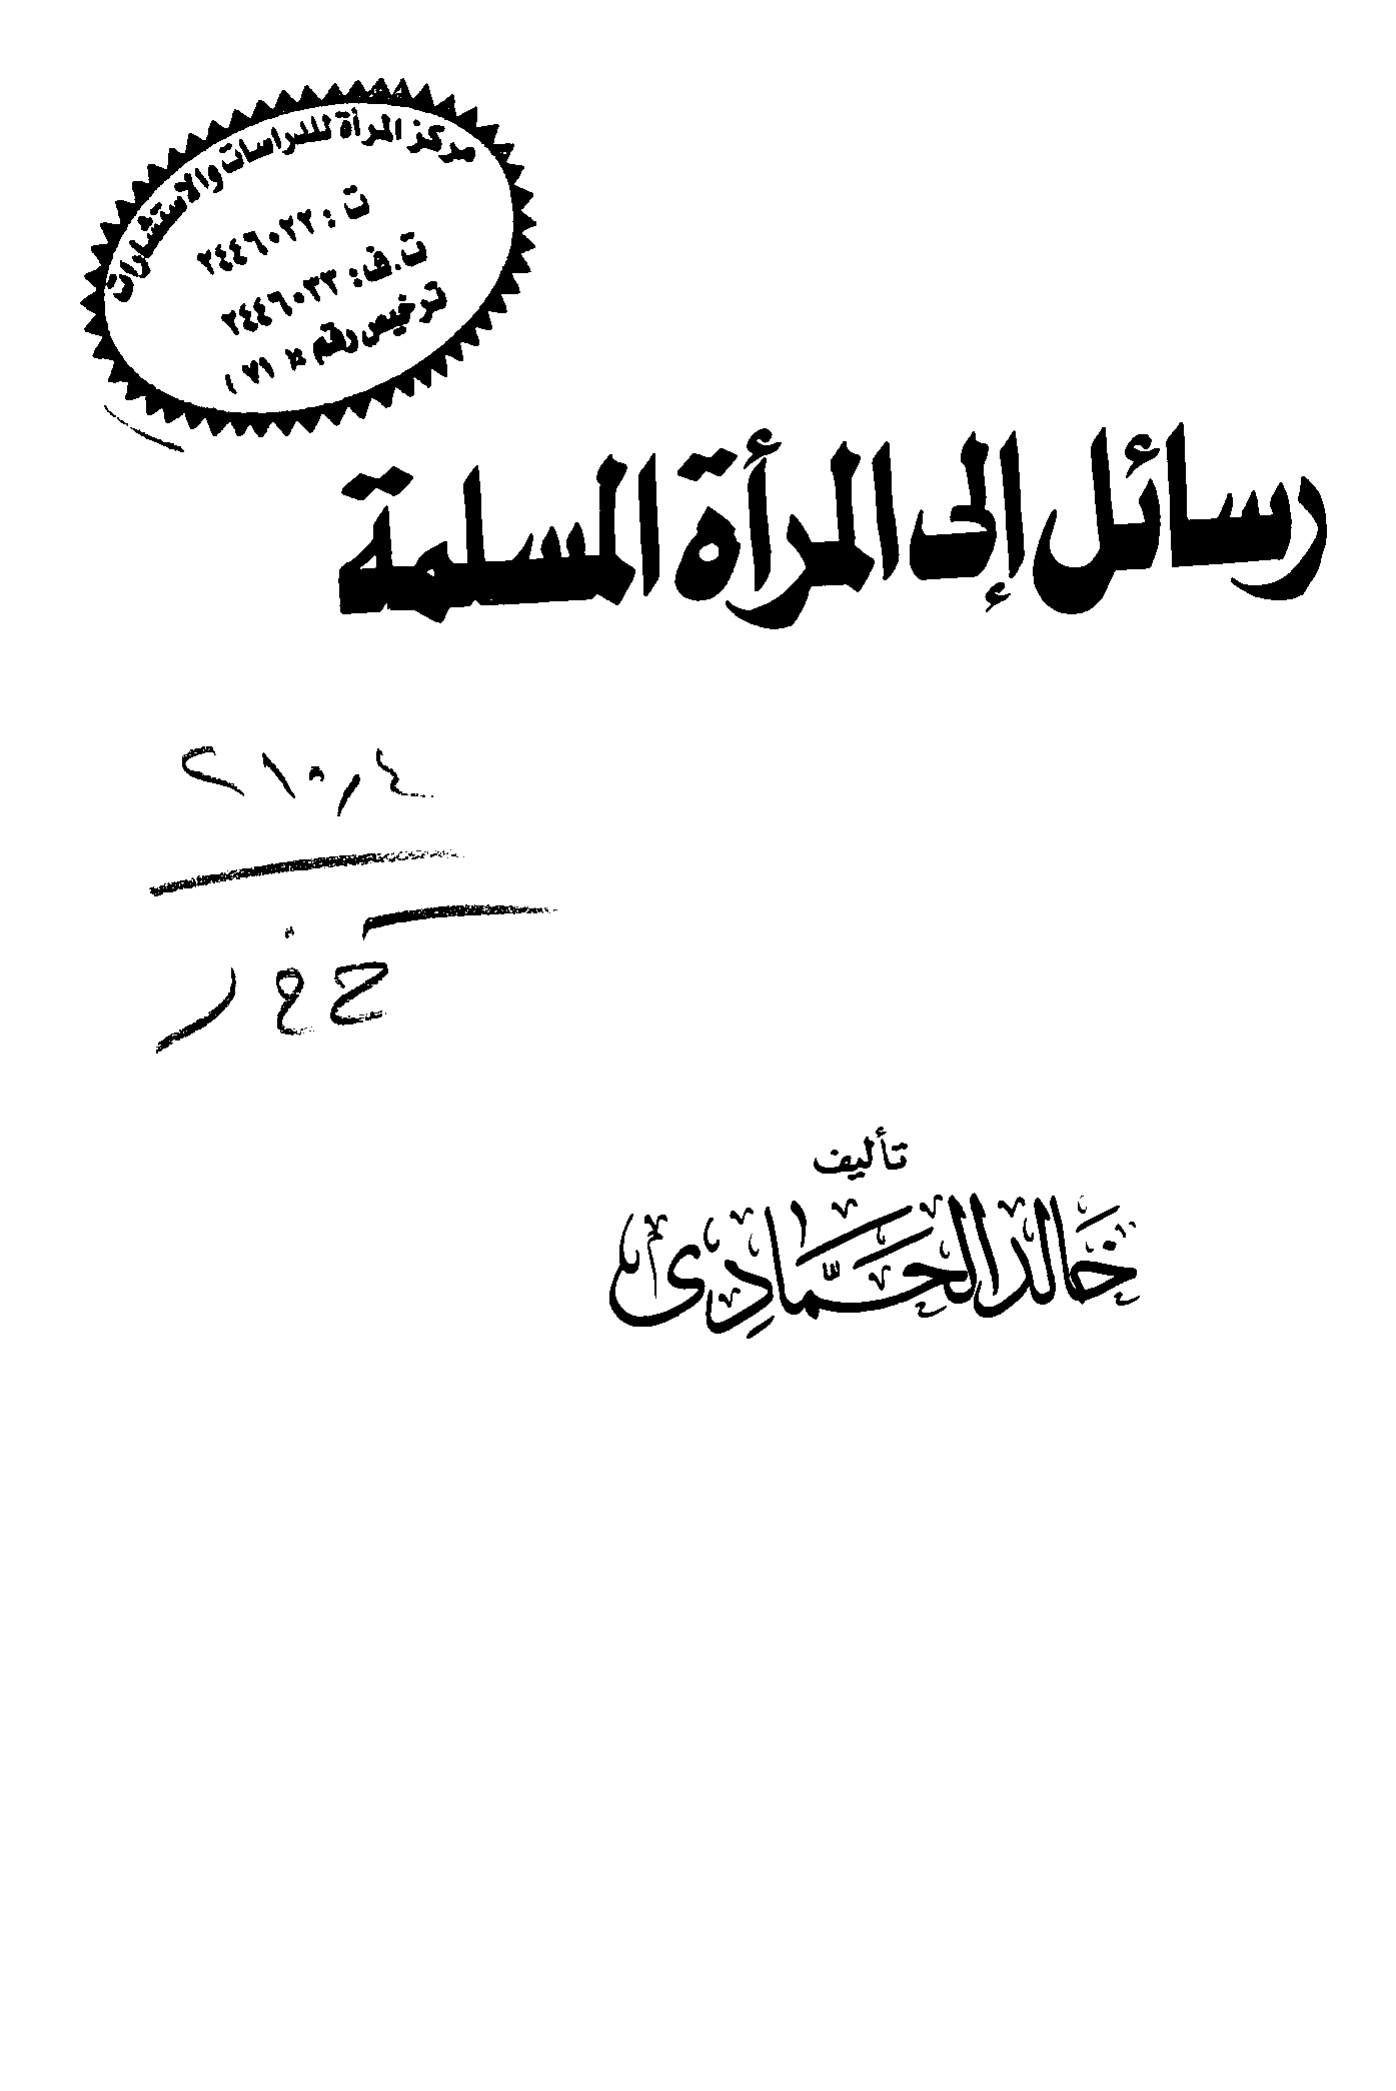 مركز المرأة للدراسات والاستشارات
ت : ٢٤٤٦٠٢٢
ت.ف: ٢٤٤٦٠٣٣
ترخيص رقم ( ٧١ )
رسائل إلى المرأة المسلمة
٢١٥,٤
تأليف
خَالد الحَمَّادِي